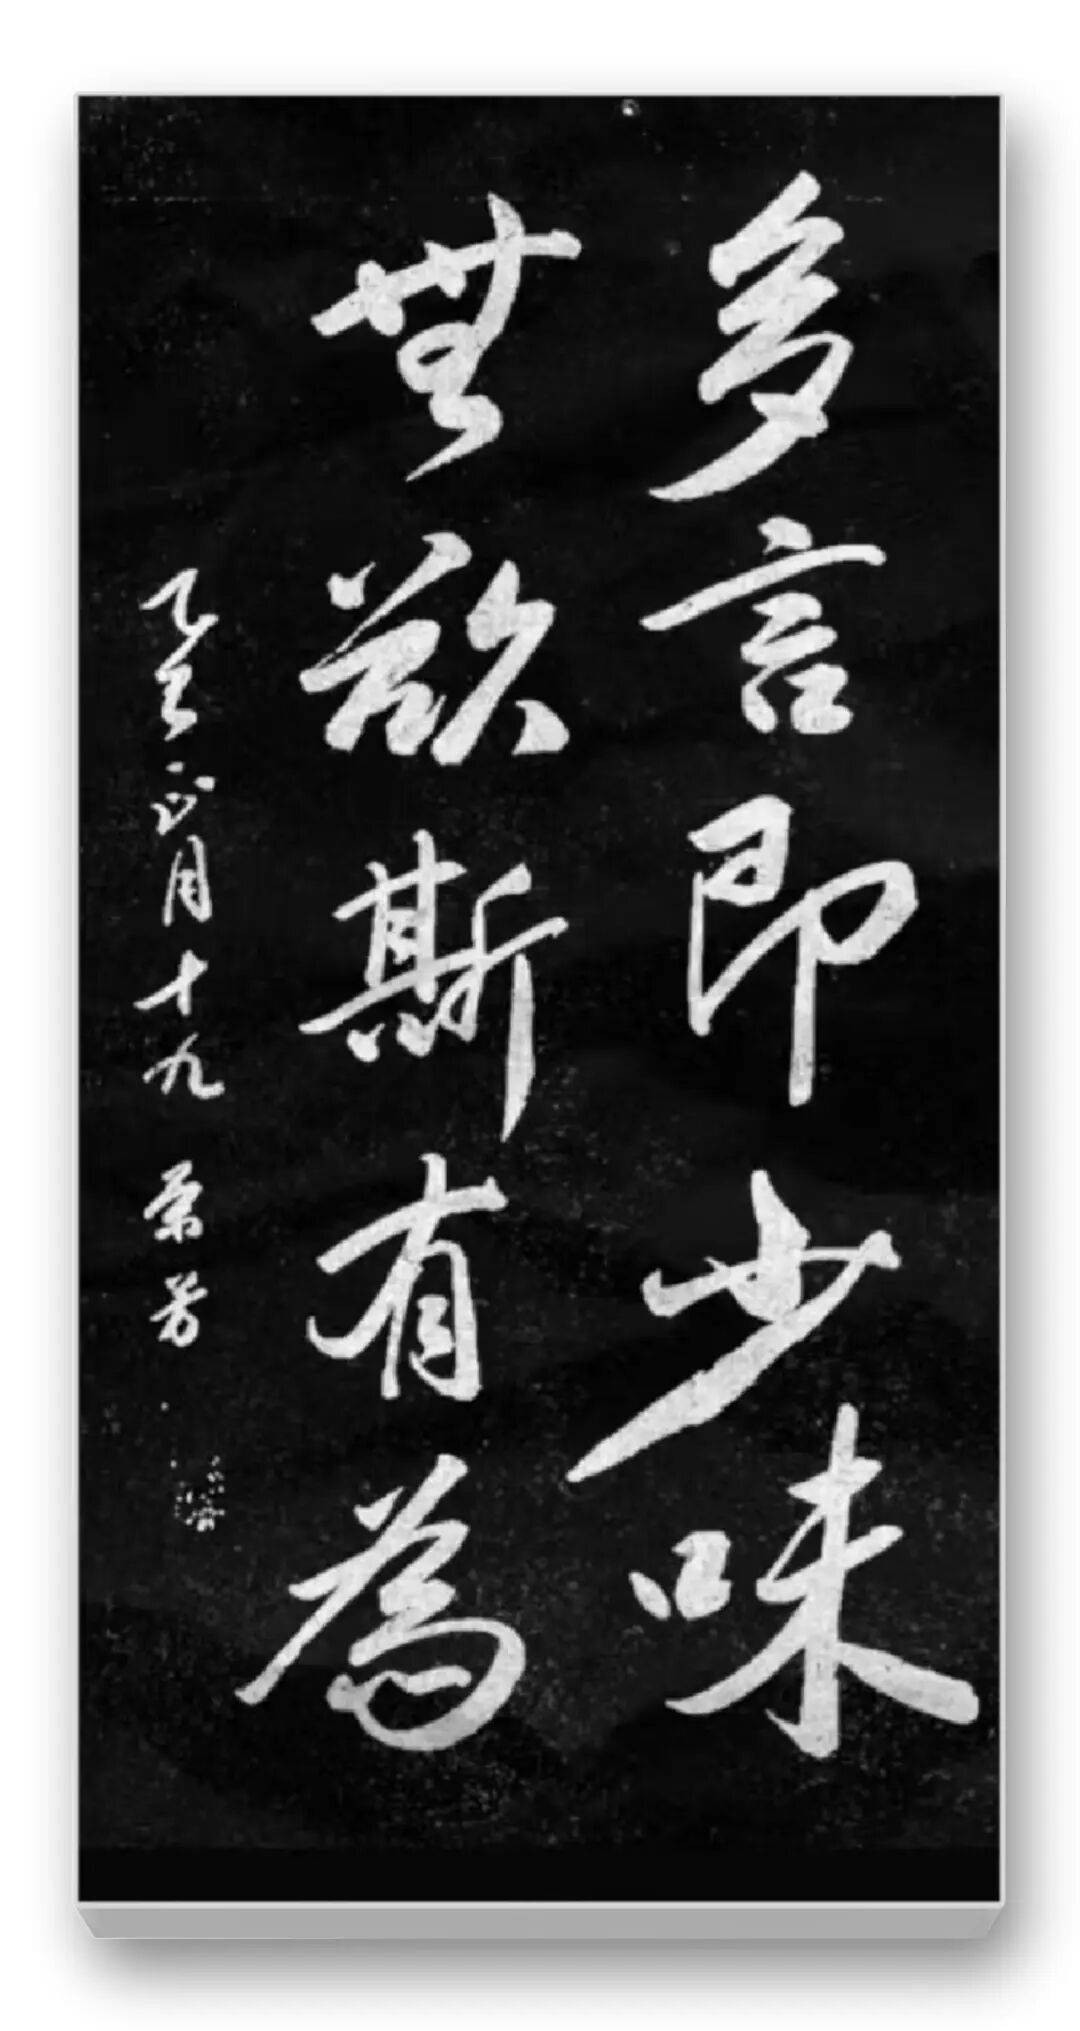 多言即少味
無欲斯有為
乙亥正月十九 景芳